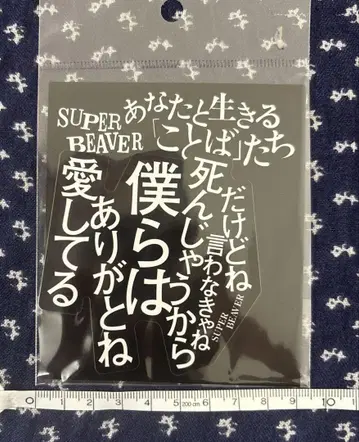 SUPER
BEAVER
あなたと生きる
「ことば」たち
だけどね
言わなきゃね
SUPER
BEAVER
死んじゃうから
僕らは
ありがとね
愛してる
0 1 2 3 4 5 200cm 6 7 8 9 10